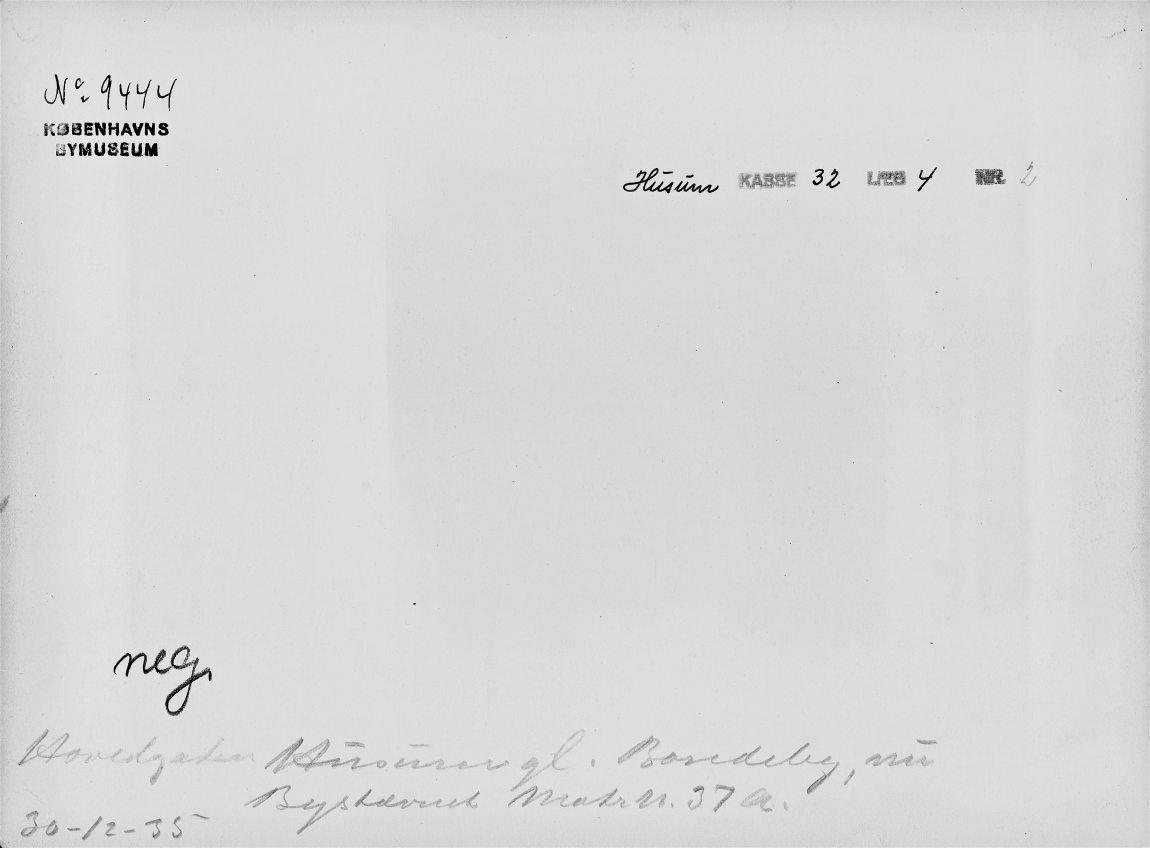 No. 9444
KØBENHAVNS
BYMUSEUM
Husum KASSE 32 LÆG 4 NR. 2
neg.
Hovedgaden Husum gl. Bondeby, nu
Bystævnet Matr. Nr. 37 a.
30-12-35